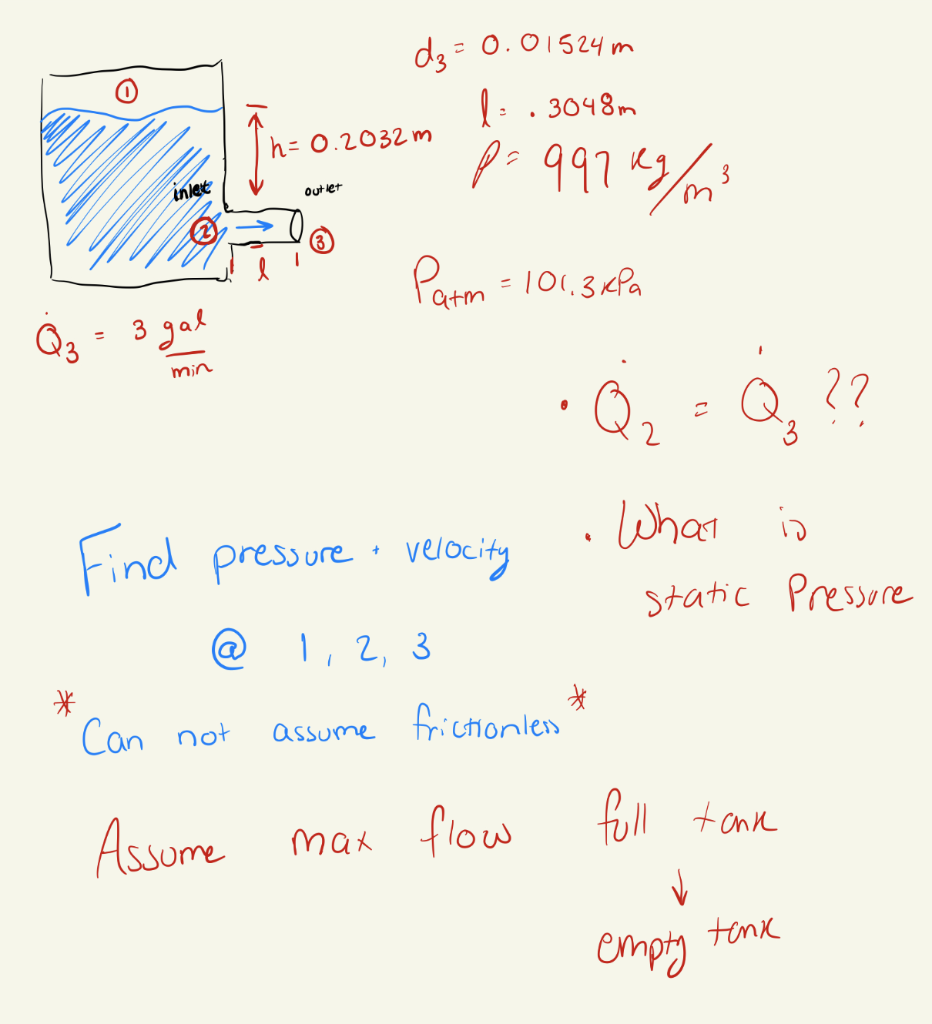 ①
h= 0.2032 m
inlet
outlet
②
③
l
Q̇₃ = 3 gal/min
d₃ = 0.01524 m
l = .3048 m
ρ = 997 kg/m³
Patm = 101.3 kPa
• Q̇₂ = Q̇₃ ??
• What is
static Pressure
Find pressure + velocity
@ 1, 2, 3
* Can not assume frictionless *
Assume max flow full tank
↓
empty tank